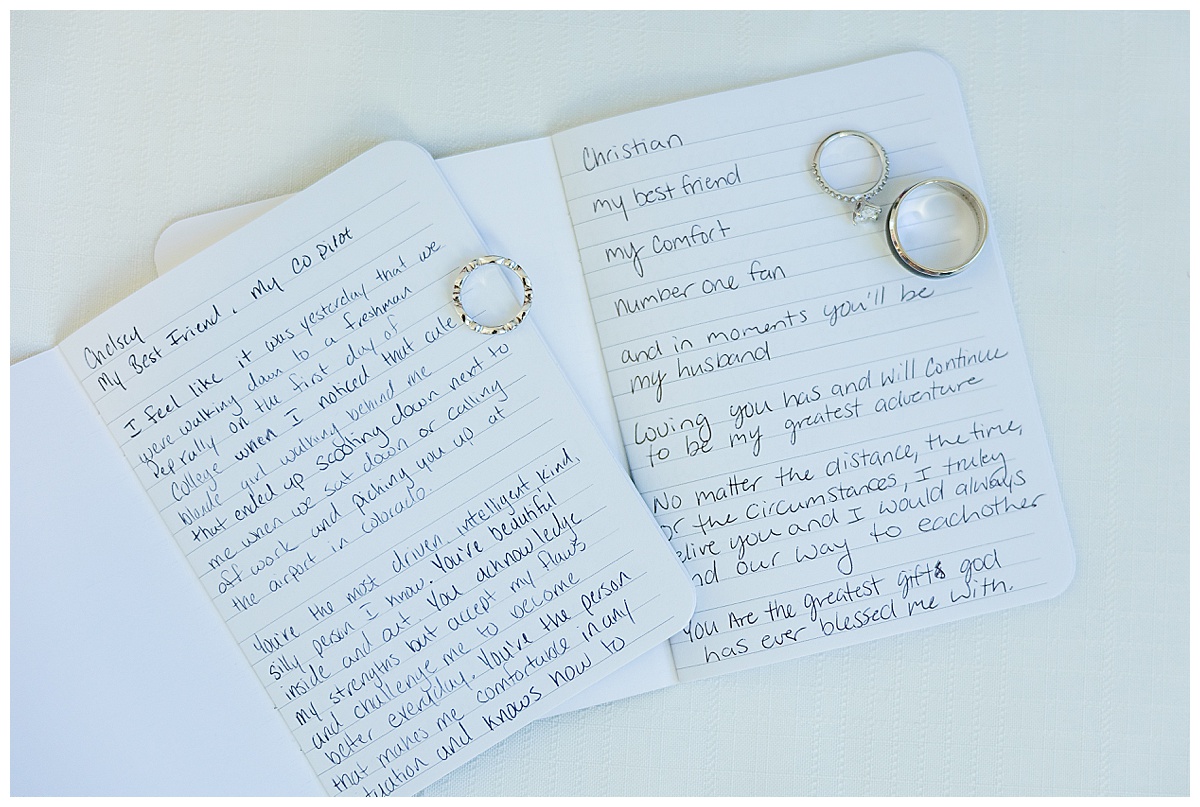 Chelsey
My Best Friend, my co pilot
I feel like it was yesterday that we
were walking down to a freshman
Pep rally on the first day of
College when I noticed that cute
blonde girl walking behind me
that ended up scooting down next to
me when we sat down or calling
off work and picking you up at
the airport in colorado.
You're the most driven, intelligent kind,
silly person I know. You're beautiful
inside and out. You acknowledge
my strengths but accept my flaws
and challenge me to become
better everyday. You're the person
that makes me comfortable in any
tuation and knows how to
Christian
my best friend
my comfort
number one fan
and in moments you'll be
my husband
Loving you has and will continue
to be my greatest adventure
No matter the distance, the time,
or the circumstances, I truley
elive you and I would always
nd our way to eachother
You Are the greatest gifts god
has ever blessed me with.